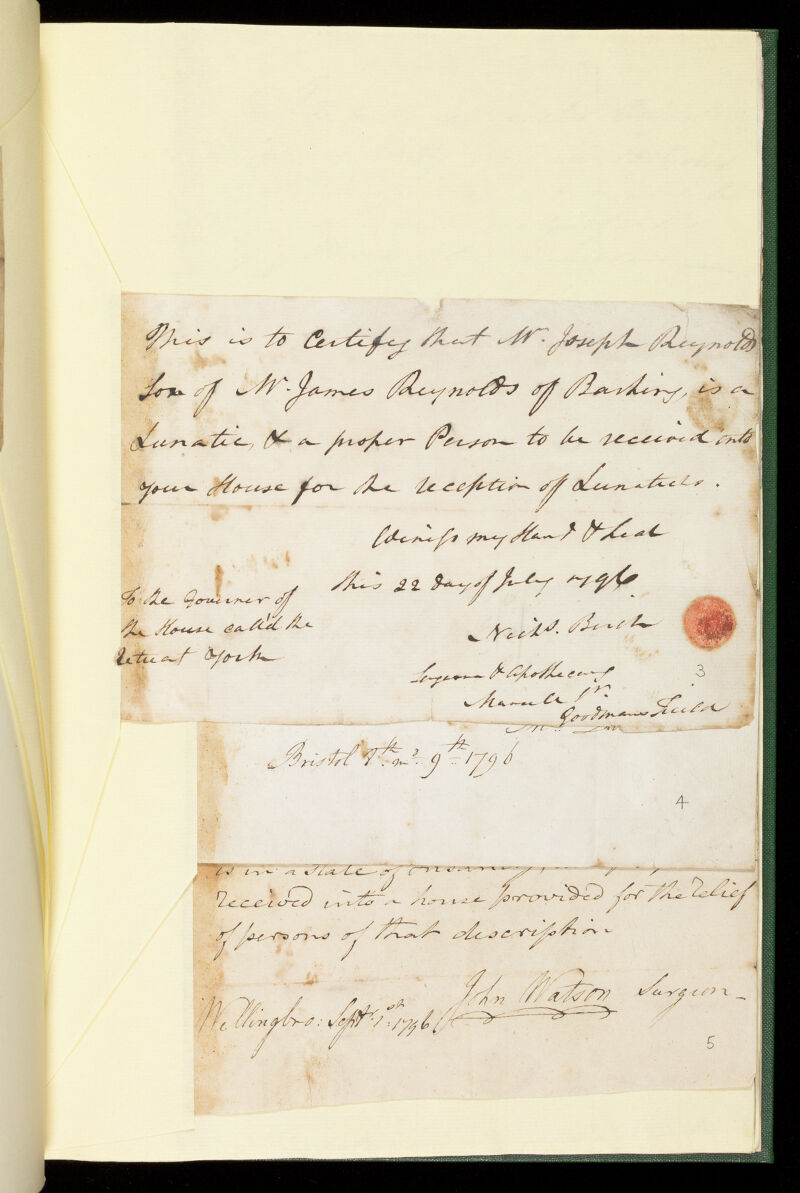 This is to Certify that Mr. Joseph Reynolds
Son of Mr. James Reynolds of Barking, is a
Lunatic, & a proper Person to be received into
your House for the reception of Lunaticks.
Witness my Hand & Seal
this 22 day of July 1796.
To the Governer of
the House call'd the
Retreat York
Nichs. Birch
Surgeon & Apothecary
Mansell Str.
Goodmans Fields
3
Bristol 8th mo. 9th 1796
4
is in a state of insanity,
received into a house provided for the relief
of persons of that description
John Watson Surgeon
Wellingbro: Septr. 1st 1796
5